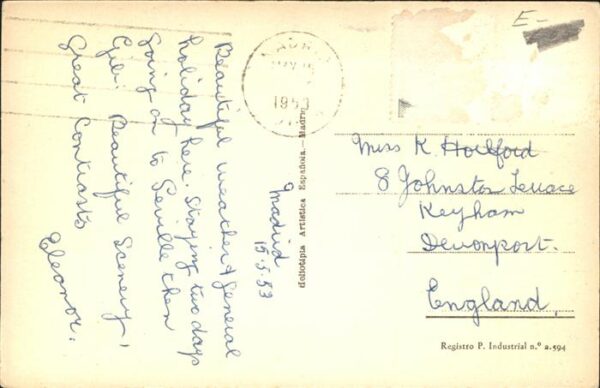 Madrid
15.5.53
Beautiful weather & general
holiday here. Staying two days
going on to Seville then
Gib. Beautiful Scenery,
Great Contrasts
Eleonor.
MADRID
1953
E-
Heliotipia Artística Española.—Madrid
Miss K.
8 Johnston Terrace
Keyham
Devonport.
England.
Registro P. Industrial n.º 2.594